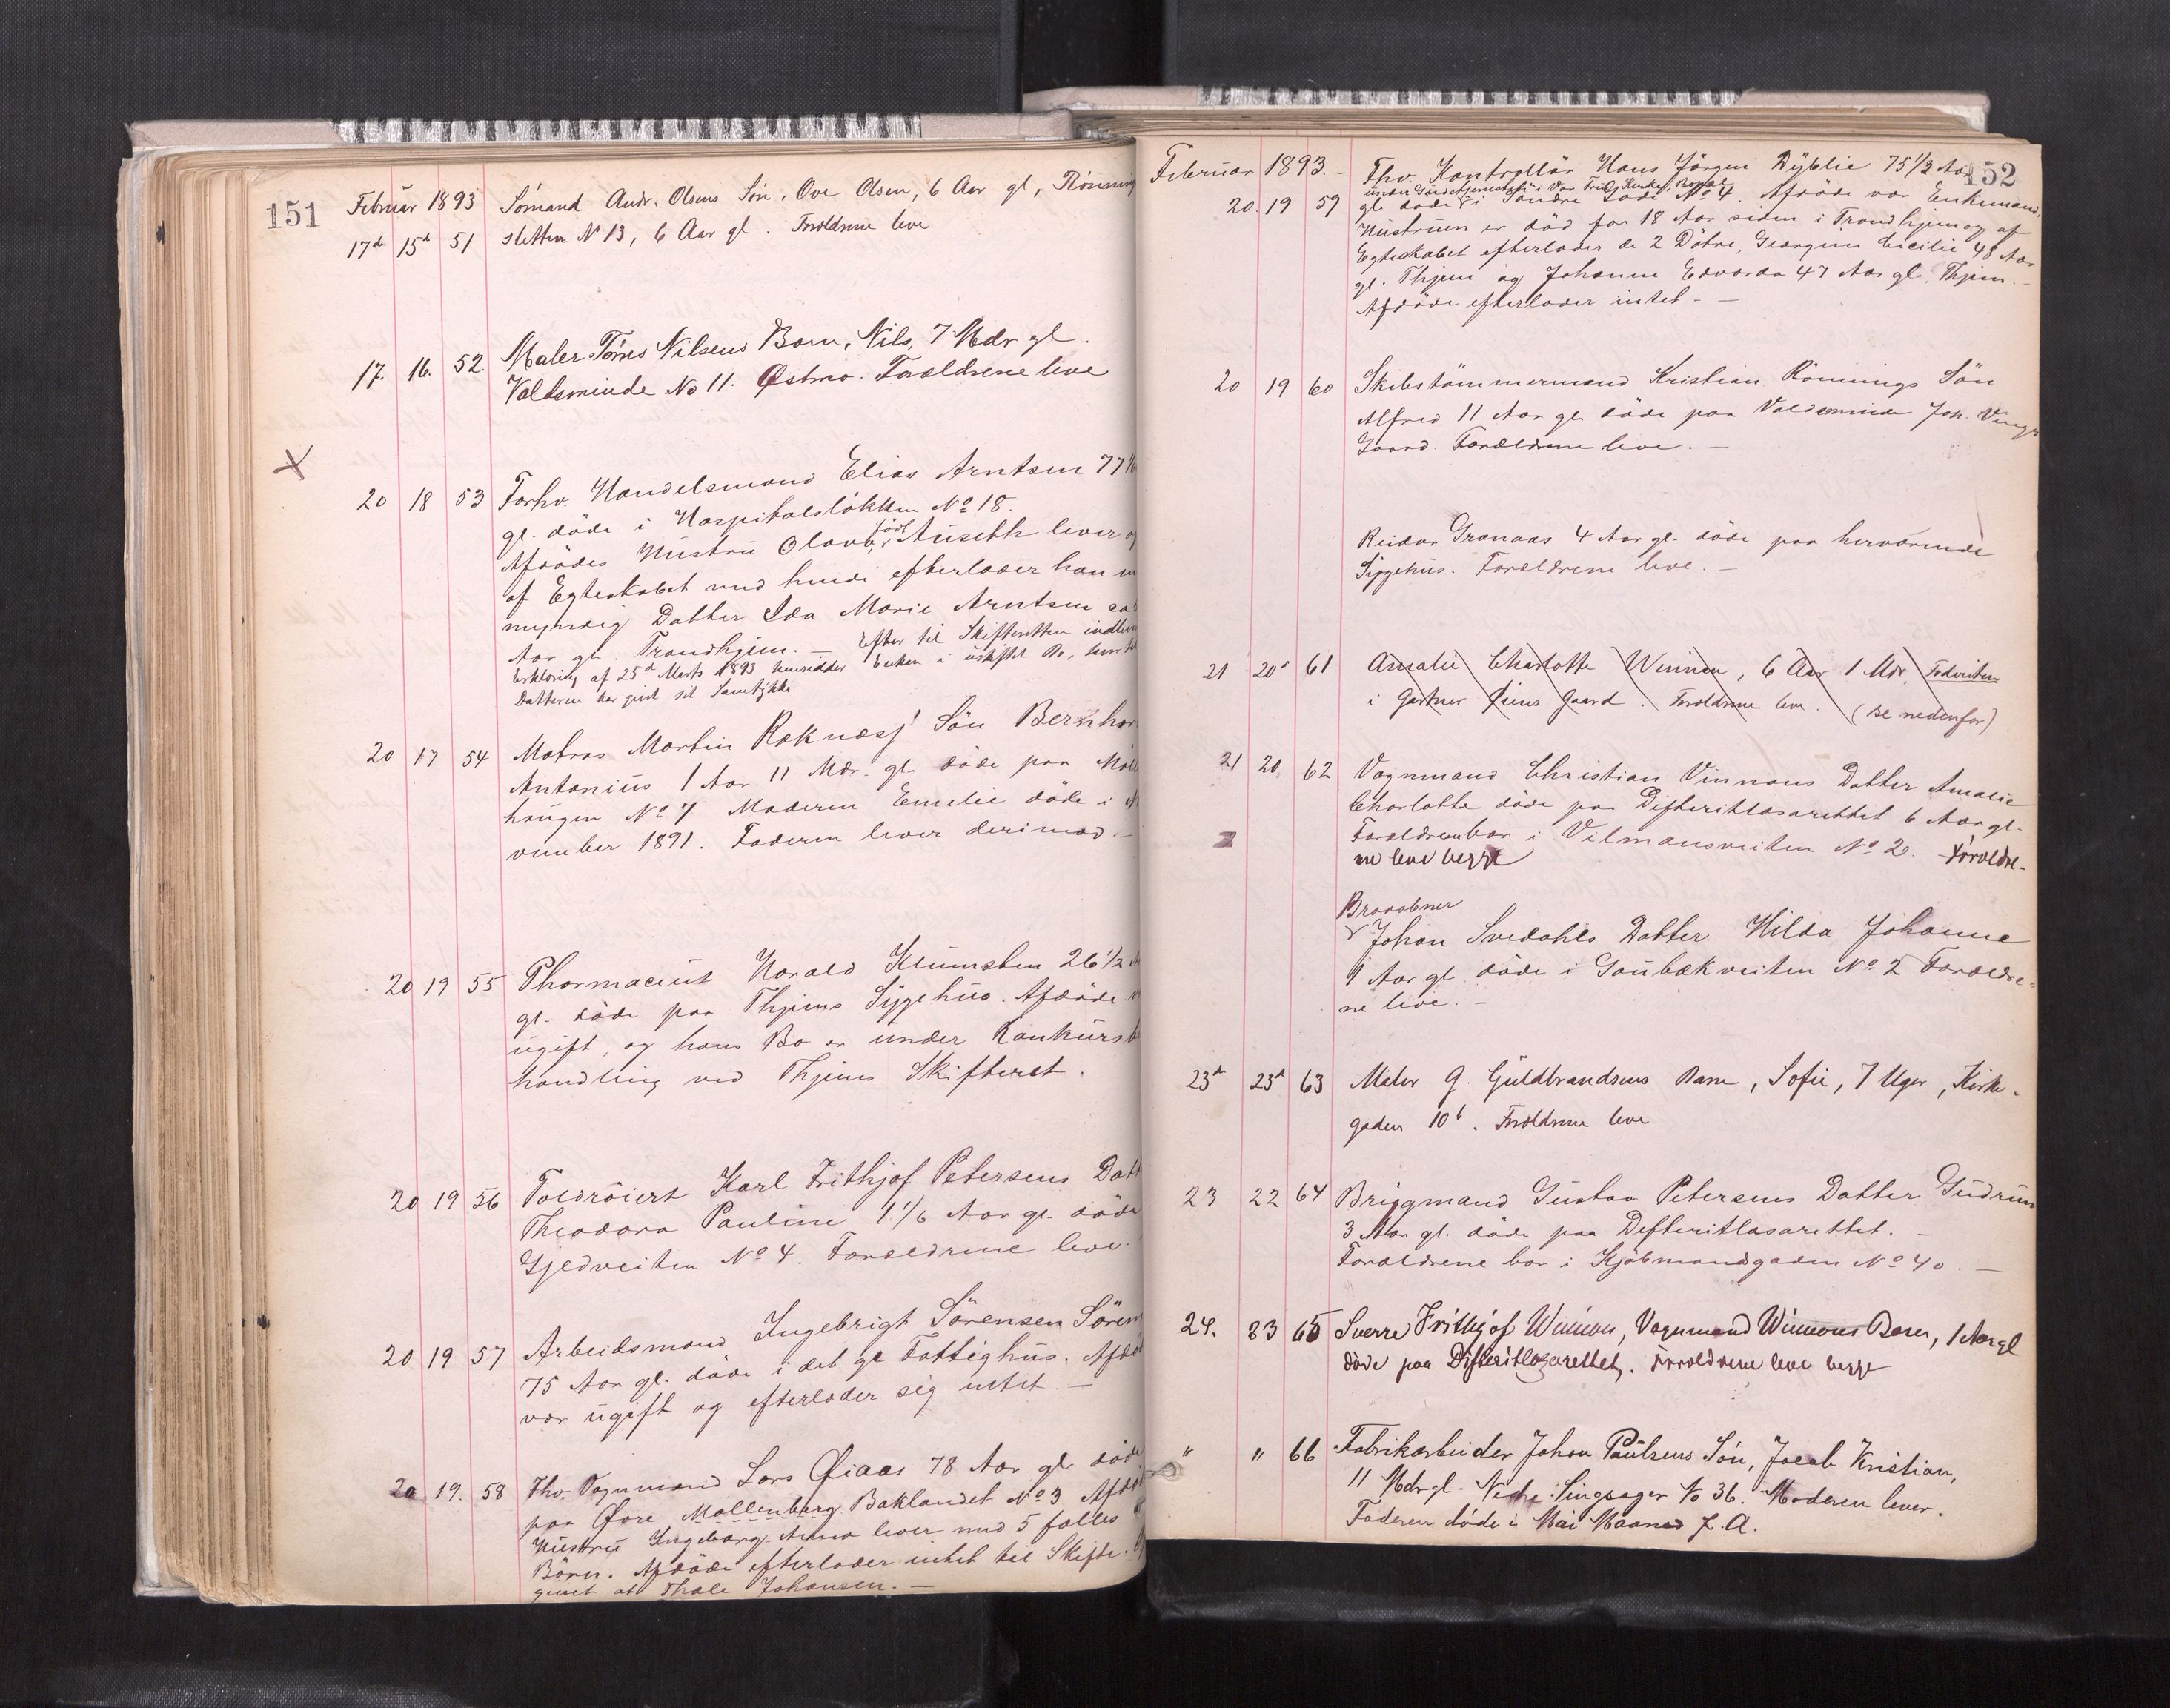 151
Februar 1893 Sömand Andr. Olsens Sön, Ove Olsen, 6 Aar gl, Rönnings
17d 15d 51 sletten No 13, 6 Aar gl. Forældrene leve
17. 16. 52. Maler Törres Nilsens Barn, Nils, 7 Mdr gl.
Voldsminde No 11. Østmo. Forældrene leve
20 18 53 Forhv. Handelsmand Elias Arntsen 77
gl. döde i Hospitalslökken No 18.
Afdödes Hustru Olava, född Auseth lever og
af Egteskabet med hende efterlader han
myndig Datter Ida Marie Arntsen
Aar gl. Trondhjem. – Efter til Skifteretten
Erklæring af 25d Marts 1893 hensidder Enken i uskiftet Bo,
Datteren har givet sit Samtykke
20 17 54 Matros Martin Roknæsj Sön Bernhar
Antonius 1 Aar 11 Mdr. gl. döde paa Möll
haugen No 7 Moderen Emelie döde i
vember 1891. Faderen lever derimod. –
20 19 55 Pharmaceut Harald Klumsten 26 1/2
gl. döde paa Thjems Sygehus. Afdöde
ugift, og hans Bo er under Konkurs
handling ved Thjems Skifteret.
20 19 56 Toldröiert Karl Frithjof Petersens Datt
Theodora Pauline 1 1/6 Aar gl. döde
Gjedveiten No 4. Forældrene leve.
20 19 57 Arbeidsmand Ingebrigt Sörensen Sörem
75 Aar gl. döde i det gl Fattighus. Afdöd
var ugift og efterlader sig intet. –
20 19. 58 Fhv. Vognmand Lars Øiaas 78 Aar gl död
paa Øvre Møllenberg Baklandet No 3 Afdöd
Hustru Ingeborg Anna lever med 5 fælles
Börn. Afdöde efterlader intet til Skifte.
givet at Thale Johansen. –
152
Februar 1893. – Fhv. Kontrollör Hans Jörgen Dyblie 75 1/2 Aar
20. 19 59 gl. döde i Söndre Gade No 4. Afdöde var Enkemand,
Hustruen er död for 18 Aar siden i Trondhjem og af
Egteskabet efterlader de 2 Dötre, Georgine Cicilie 48 Aar
gl. Thjem og Johanne Edvarda 47 Aar gl. Thjem. –
Afdöde efterlader intet. –
20 19 60 Skibstömmermand Kristian Rönnings Sön
Alfred 11 Aar gl. döde paa Voldsminde Joh. Vings
Gaard. Forældrene leve. –
Reidar Granaas 4 Aar gl. döde paa herværende
Sygehus. Forældrene leve. –
21 20d 61 Amalie Charlotte Winnan, 6 Aar 1 Mdr,
i Gartner Gaard. Forældrene leve. (se nedenfor)
21 20. 62 Vognmand Christian Vinnans Datter Amalie
Charlotte döde paa Difteritlasarettet 6 Aar gl.
Forældrene bor i Vilmansveiten No 2. Forældre-
ne leve begge
Brovobner
Johan Svedahls Datter Hilda Johanne
1 Aar gl döde i Goubækveiten No 2 Forældre-
ne leve. –
23d 23d 63 Maler G. Guldbrandsens Barn, Sofie, 7 Uger, Kirke-
gaden 10b. Forældrene leve
23 22 64 Bryggmand Gustav Petersens Datter Gudrun
3 Aar gl. döde paa Defteritlasarettet. –
Forældrene bor i Kjöbmandgaden No 40. –
24. 23 65 Sverre Frithjof Winnan, Vognmand Winnans Barn, 1 Aar gl
döde paa Difteritlazarettet. Forældrene leve begge
" " 66 Fabrikarbeider Johan Paulsens Sön, Jacob Kristian,
11 Mdr gl. Nedre Singsager No 36. Moderen lever.
Faderen döde i Mai Maaned f. A.